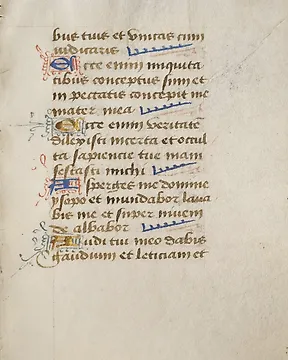 bus tuis et vincas cum
iudicaris
Ecce enim iniquita
tibus conceptus sum et
in peccatis concepit me
mater mea
Ecce enim veritatē
dilexisti incerta et occul
ta sapiencie tue mani
festasti michi
Asperges me domine
ysopo et mundabor laua
bis me et super niuem
de albabor
Audi tui meo dabis
gaudium et leticiam et